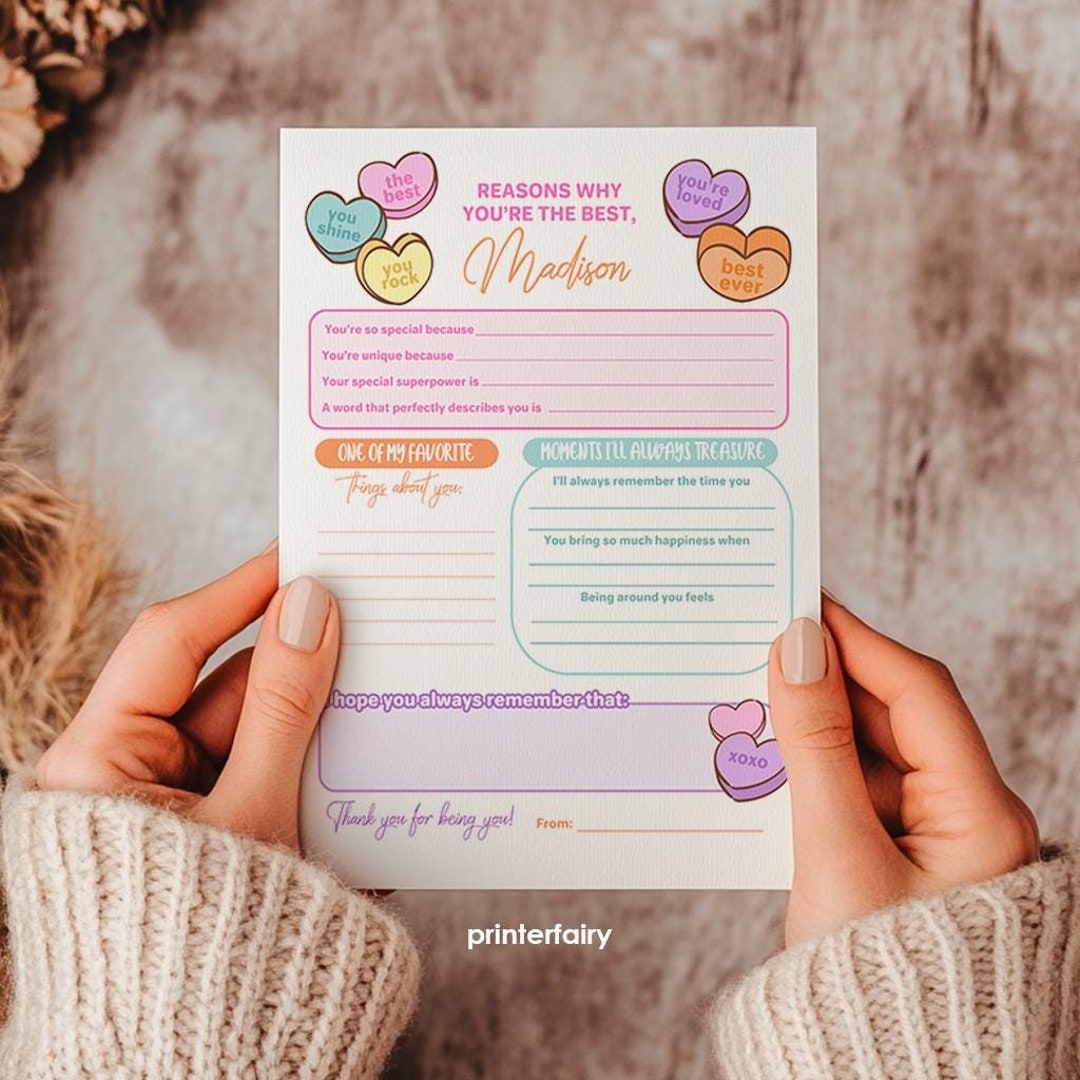 the
best
you
shine
you
rock
REASONS WHY
YOU'RE THE BEST,
Madison
you're
loved
best
ever
You're so special because
You're unique because
Your special superpower is
A word that perfectly describes you is
ONE OF MY FAVORITE
Things about you:
MOMENTS I'LL ALWAYS TREASURE
I'll always remember the time you
You bring so much happiness when
Being around you feels
hope you always remember that:
xoxo
Thank you for being you!
From:
printerfairy